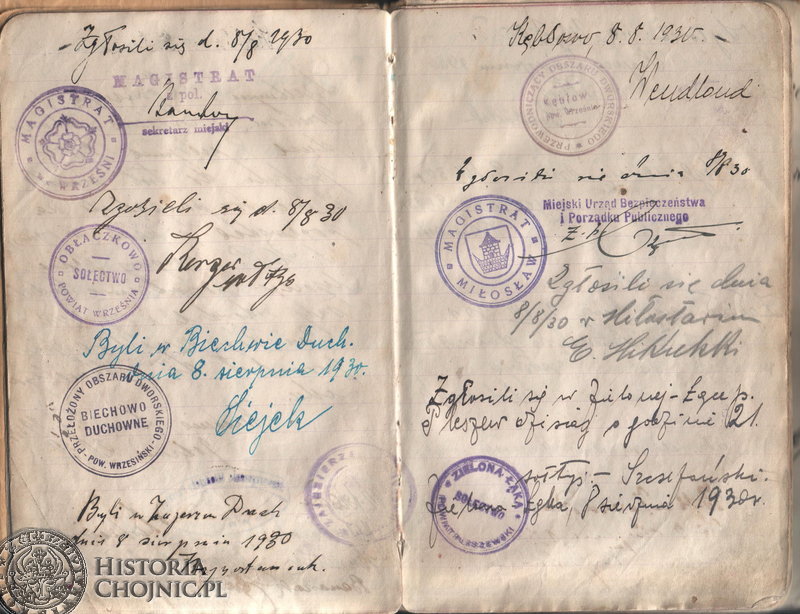 Zgłosili się d. 8/8 1930
MAGISTRAT
z pol.
sekretarz miejski
MAGISTRAT
WE WRZEŚNI
Zgłosieli się d. 8/8 30
OBŁACZKOWO
SOŁECTWO
POWIAT WRZEŚNIA
Byli w Biechowie Duch.
dnia 8. sierpnia 1930.
PRZEŁOŻONY OBSZARU DWORSKIEGO
BIECHOWO
DUCHOWNE
POW. WRZESIŃSKI
Byli w
dnia 8 sierpnia 1930
HISTORIA
CHOJNIC.PL
8. 8. 1930.
PRZEWODNICZĄCY OBSZARU DWORSKIEGO
Pow. Września
Zgłosili się dnia 8/8 30
Miejski Urząd Bezpieczeństwa
i Porządku Publicznego
MAGISTRAT
MIŁOSŁAW
Zgłosili się dnia
8/8/30 w
Zgłosili się w Zielonej-Łące p.
Pleszew dzisiaj o godzinie 21.
sołtys - Szczepański.
Zielona Łąka, 8 sierpnia 1930r.
ZIELONA ŁĄKA
SOŁECTWO
POWIAT PLESZEWSKI